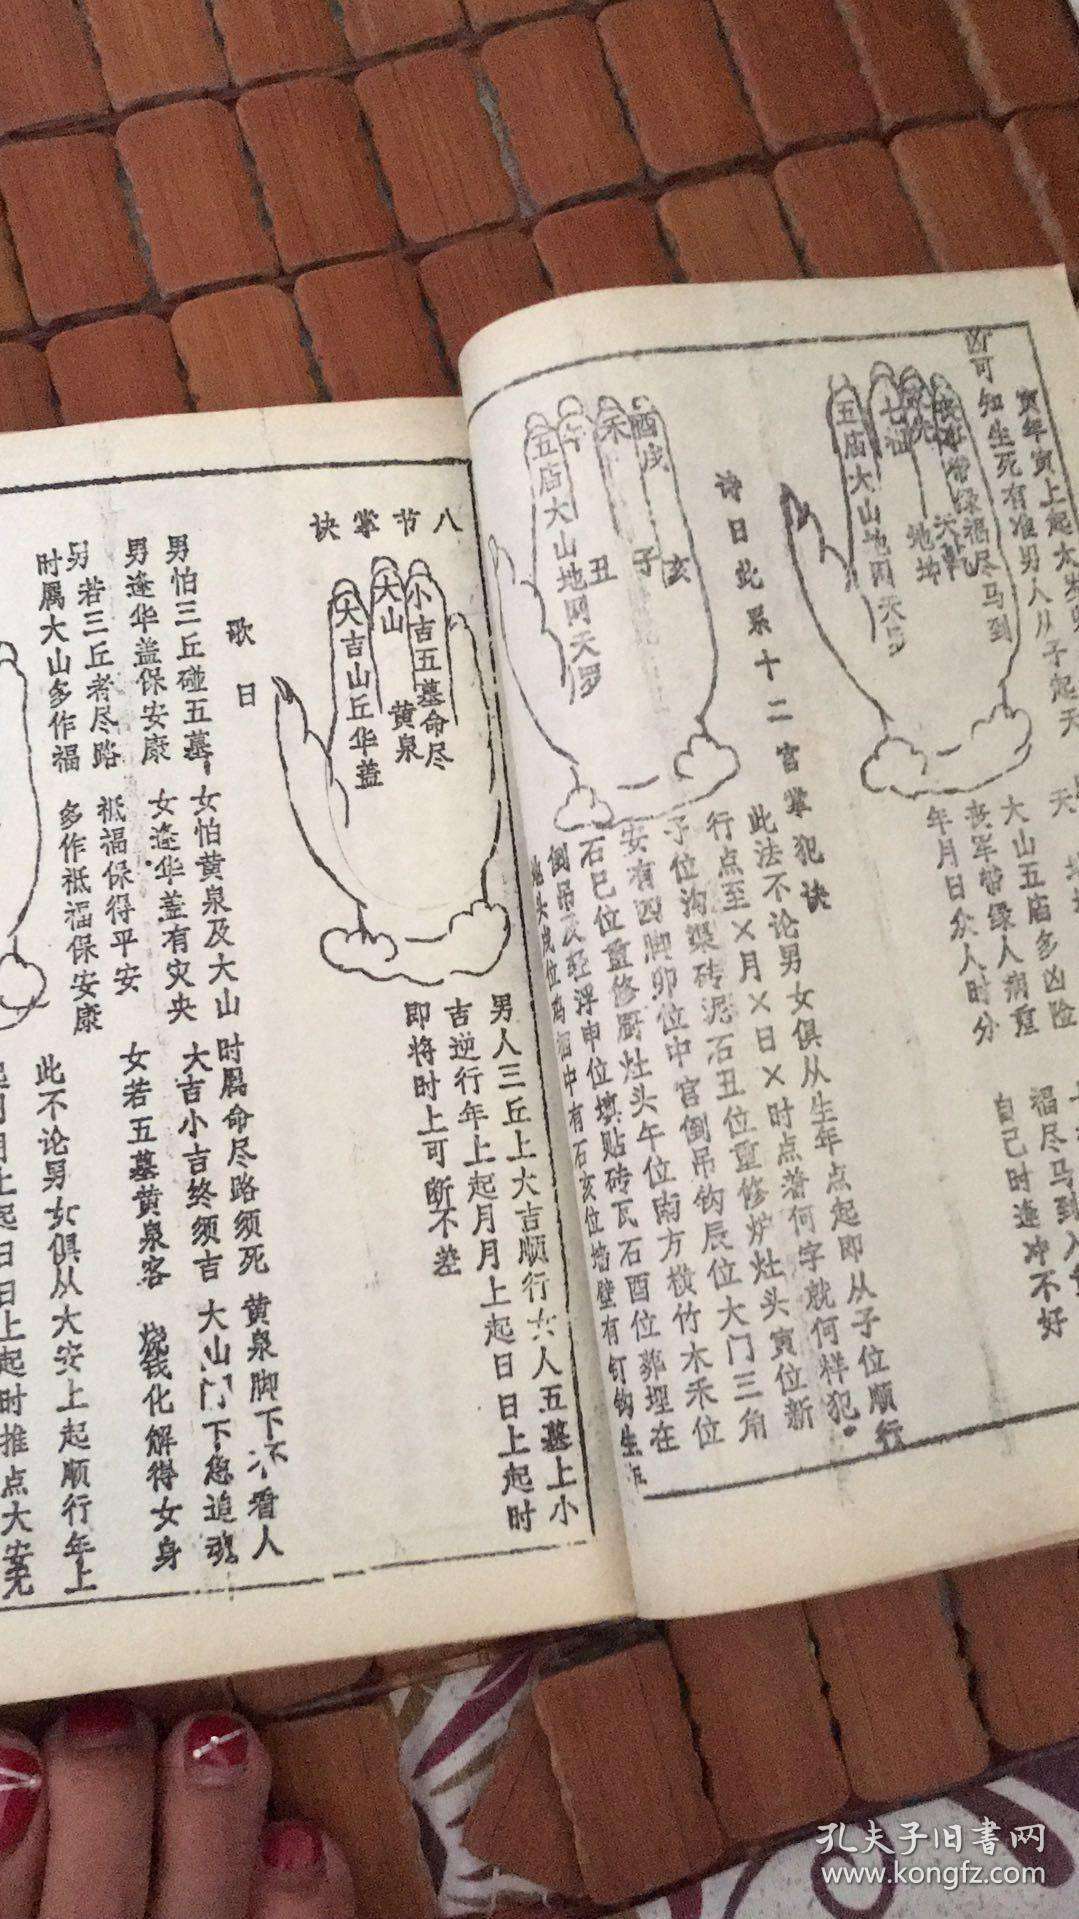 寅年寅上起太岁男
凶可知生死有准男人从子起天
带禄福尽马到
地坤
七
五庙大山地网天罗
大山五庙多凶险
丧军带禄人病重
年月日众人时分
福尽马到入
自己时逢冲不好
诗曰此系十二宫掌犯诀
酉戌
亥
禾
子
午
丑
五庙大山地网天罗
此法不论男女俱从生年点起即从子位顺行
行点至×月×日×时点着何字就何样犯。
子位沟渠砖泥石丑位重修炉灶头寅位新
安有四脚卯位中宫倒吊钩辰位大门三角
石巳位重修厨灶头午位南方横竹木禾位
倒吊及轻浮申位填贴砖瓦石酉位葬埋在
中有石亥位墙壁有钉钩生
八节掌诀
小吉五墓命尽
黄泉
大山
大吉山丘华盖
男人三丘上大吉顺行女人五墓上小
吉逆行年上起月月上起日日上起时
即将时上可断不差
歌曰
男怕三丘碰五墓 女怕黄泉及大山 时属命尽路须死 黄泉脚下不看人
男逢华盖保安康 女逢华盖有灾央 大吉小吉终须吉 大山门下急追魂。
男若三丘者尽路 祗福保得平安 女若五墓黄泉客 烧钱化解得女身
时属大山多作福 多作祗福保安康
此不论男女俱从大安上起顺行年上
起月月上起日日上起时推点大安无
孔夫子旧书网
www.kongfz.com